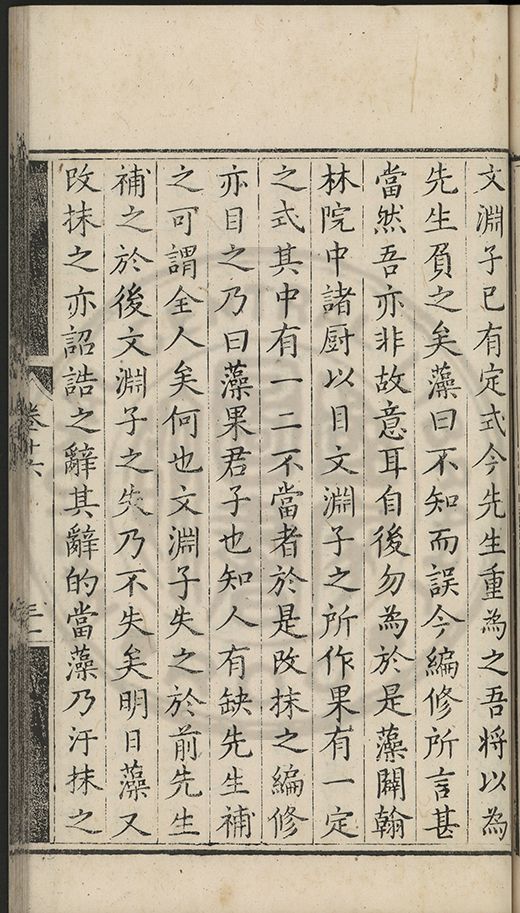 文淵子已有定式今先生重為之吾将以為
先生負之矣藻曰不知而誤今編修所言甚
當然吾亦非故意耳自後勿為於是藻闢翰
林院中諸厨以目文淵子之所作果有一定
之式其中有一二不當者於是改抹之編修
亦目之乃曰藻果君子也知人有缺先生補
之可謂全人矣何也文淵子失之於前先生
補之於後文淵子之失乃不失矣明日藻又
改抹之亦詔誥之辭其辭的當藻乃汙抹之
卷十六